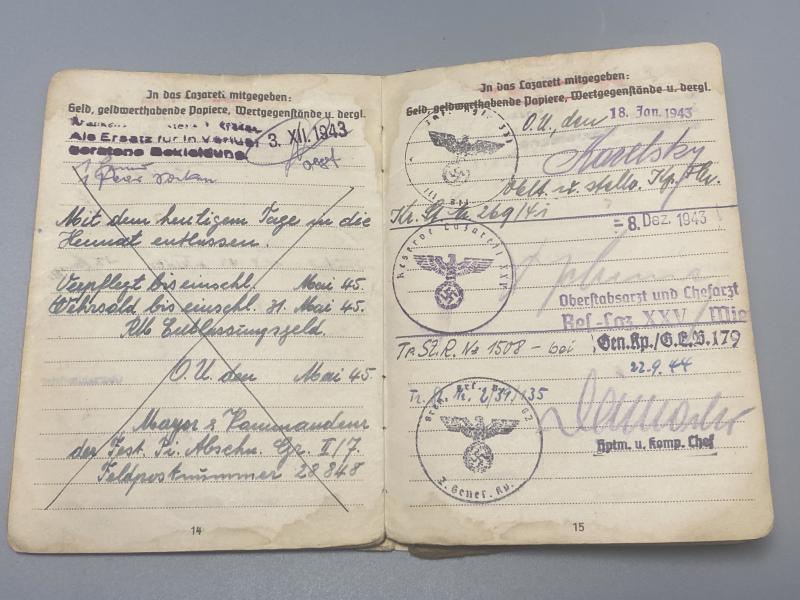 In das Lazarett mitgegeben:
Geld, geldwerthabende Papiere, Wertgegenstände u. dergl.
Als Ersatz für in Verlust
geratene Bekleidung
3. XII. 1943
Mit dem heutigem Tage in die
Heimat entlassen.
Verpflegt bis einschl. Mai 45.
Wehrsold bis einschl. 31. Mai 45.
RM Entlassungsgeld.
O.U. den Mai 45.
Major & Kommandeur
der Fest. Pi. Abschn. Gr. II/7.
Feldpostnummer 28848
14
In das Lazarett mitgegeben:
Geld, geldwerthabende Papiere, Wertgegenstände u. dergl.
O.U., den 18. Jan. 1943
Oblt. u. stellv. Kp.
Kr. St. Nr 269/41
-8. Dez. 1943
Reserve Lazarett XXV
Oberstabsarzt und Chefarzt
Res-Laz XXV
Tr. St. R. No 1508 - bei Gen.Kp./G.E.B. 179
22.9.44
Tr. St. Nr. 2/
2. Genes. Kp.
Hptm. u. Komp. Chef
15